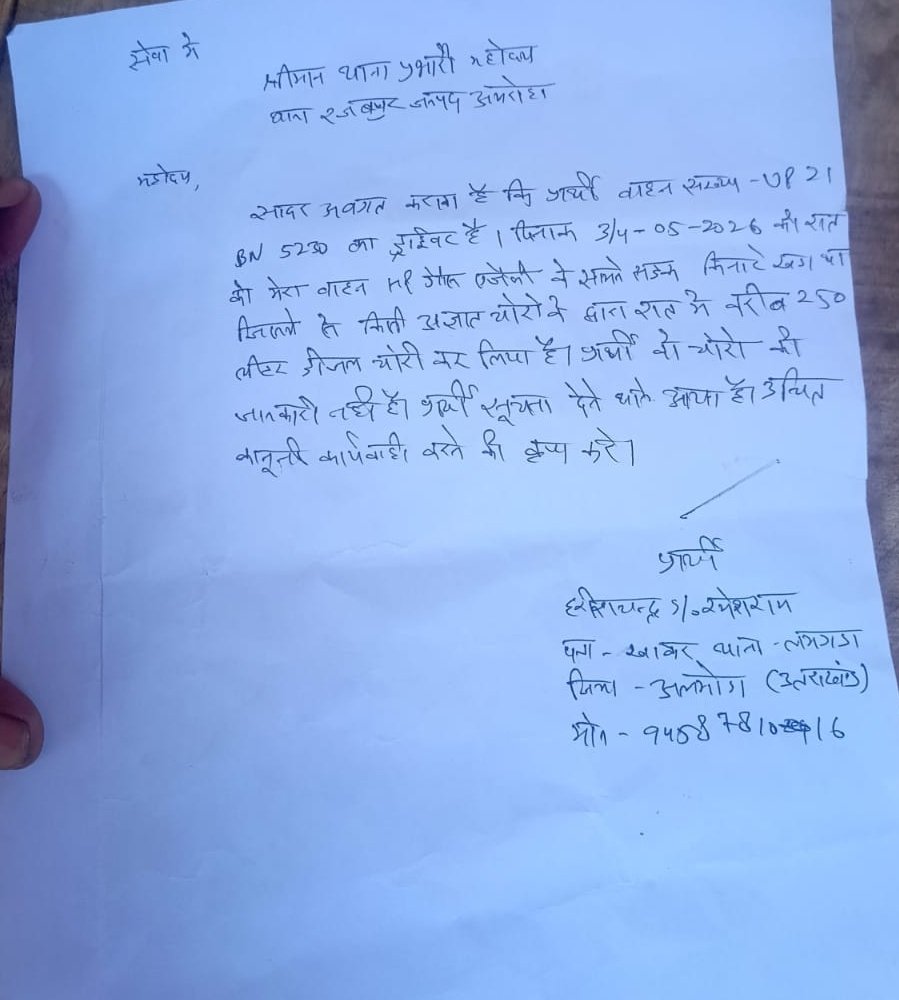 सेवा मे
श्रीमान थाना प्रभारी महोदय
थाना रजबपुर जनपद अमरोहा
महोदय,
सादर अवगत कराना है कि प्रार्थी वाहन संख्या - UP 21
BN 5230 का ड्राईवर है। दिनांक 3/4-05-2026 की रात
को मेरा वाहन HP के सामने सडक किनारे खडा था
जिसमे से किसी अज्ञात चोरो के द्वारा रात मे करीब 250
लीटर डीजल चोरी कर लिया है। प्रार्थी को चोरो की
जानकारी नही है। प्रार्थी सूचना देने थाने आया है। उचित
कानूनी कार्यवाही करने की कृपा करे।
प्रार्थी
हरीशचन्द्र S/o रमेशराम
पता - खाकर थाना - लमगडा
जिला - अलमोडा (उत्तराखंड)
मो०न -